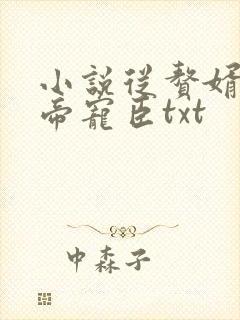 小説從贅婿
帝寵臣txt
中森子